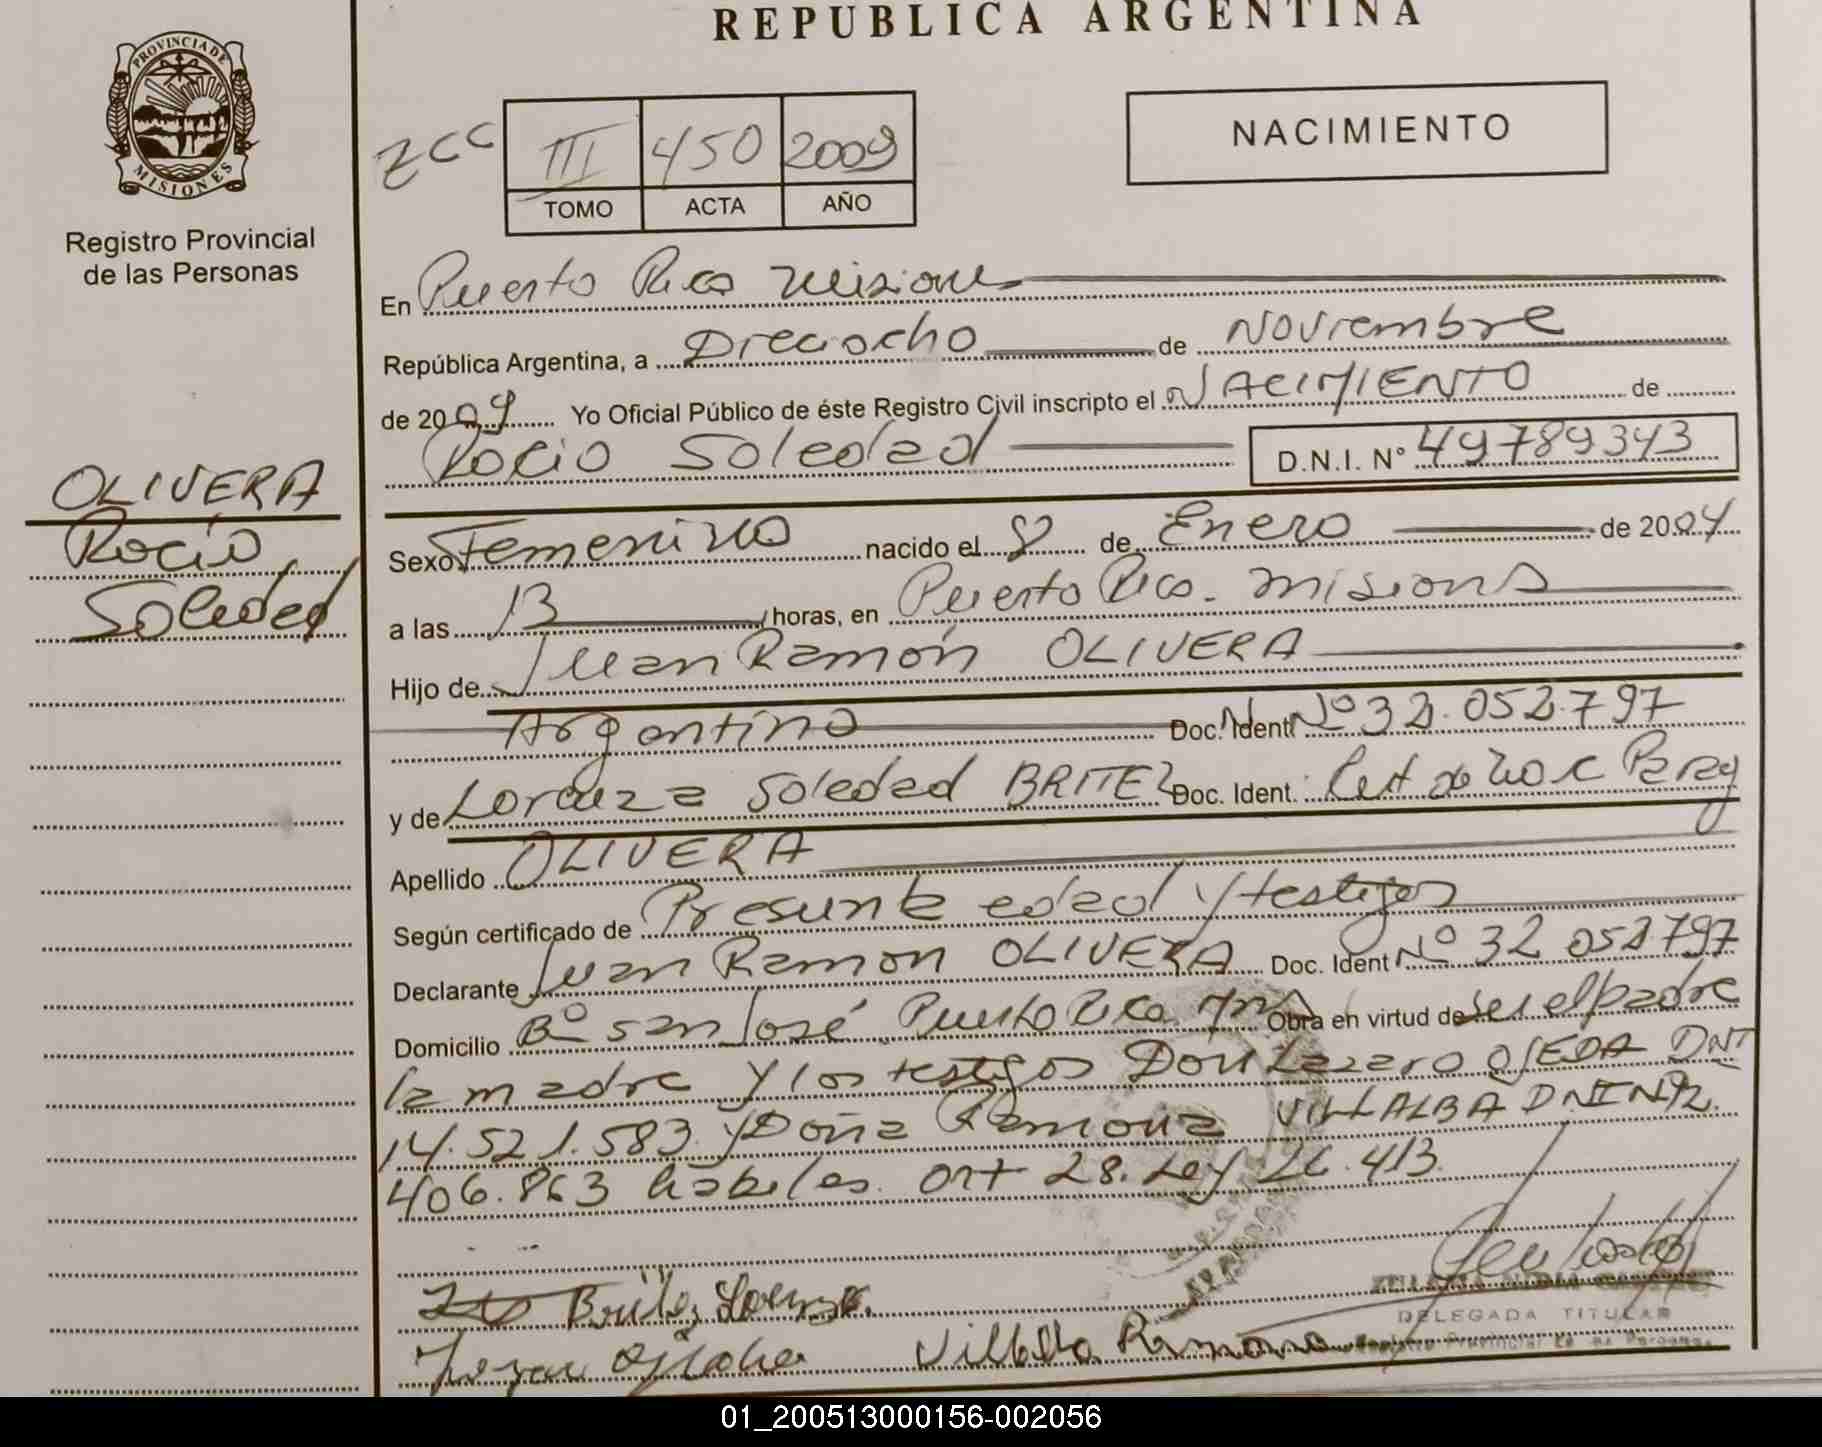 REPUBLICA ARGENTINA
PROVINCIA DE
MISIONES
Registro Provincial
de las Personas
ZCC
III 450 2009
TOMO ACTA AÑO
NACIMIENTO
En Puerto Rico Misiones
República Argentina, a Dieciocho de Noviembre
de 2009 Yo Oficial Público de éste Registro Civil inscripto el NACIMIENTO de
Rocio Soledad D.N.I. N° 49789343
OLIVERA
Rocio
Soledad
Sexo Femenino nacido el 8 de Enero de 20
a las 13 horas, en Puerto Rico - Misiones
Hijo de Juan Ramón OLIVERA
Argentino Doc. Ident Nº 32.052.797
y de Soledad BRITEZ Doc. Ident.
Apellido OLIVERA
Según certificado de Presunta edad y testigos
Declarante Juan Ramon OLIVERA Doc. Ident Nº 32 052797
Domicilio Bº San José Puerto Rico Mns Obra en virtud de ser el padre
la madre y los testigos Don Lazaro OJEDA DNI
14.521.583 y Doña Ramona VILLALBA DNI Nº 12.
406.863 habiles. Art 28. Ley 26.413.
Britez
Villalba Ramona
DELEGADA TITULAR
Registro Provincial de las Personas
01_200513000156-002056